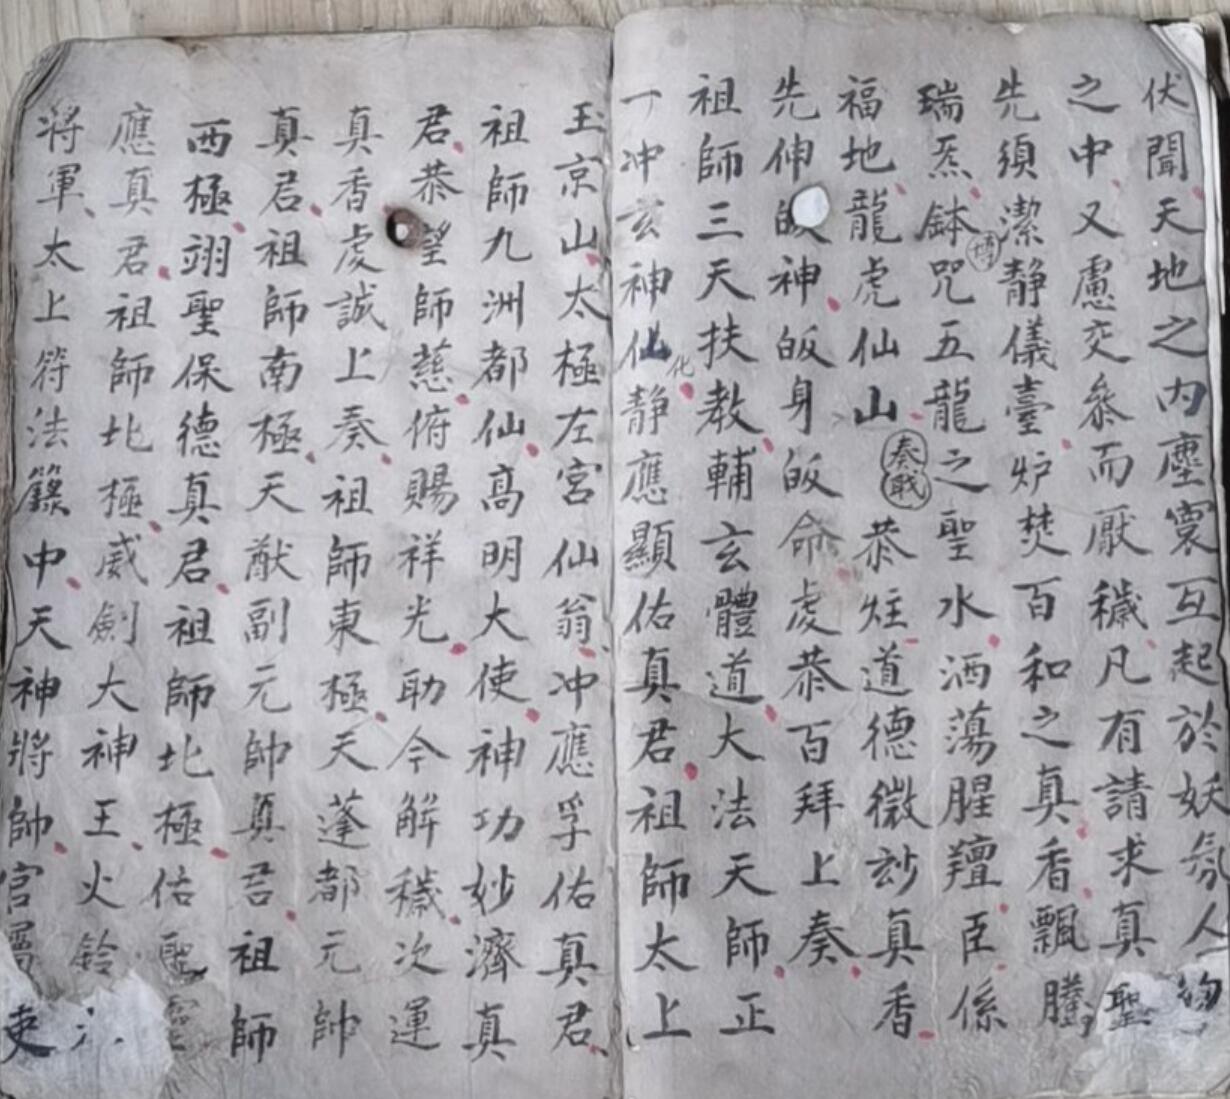 伏聞天地之内塵寰互起於妖氛人物
之中又慮交叅而厭穢凡有請求真聖
先須潔静儀臺炉焚百和之真香飄騰
瑞炁鉢咒五龍之聖水洒蕩腥羶臣係
福地龍虎仙山 奏職 恭炷道德微玅真香
先伸皈神皈身皈命虔恭百拜上奏
祖師三天扶教輔玄體道大法天師正
一冲玄神化静應顯佑真君祖師太上
玉京山太極左宮仙翁冲應孚佑真君
祖師九洲都仙高明大使神功妙濟真
君恭望師慈俯賜祥光助令解穢次運
真香虔誠上奏祖師東極天蓬都元帥
真君祖師南極天猷副元帥真君祖師
西極翊聖保德真君祖師北極佑聖
應真君祖師北極威劍大神王火鈴
將軍太上符法籙中天神將帥官吏